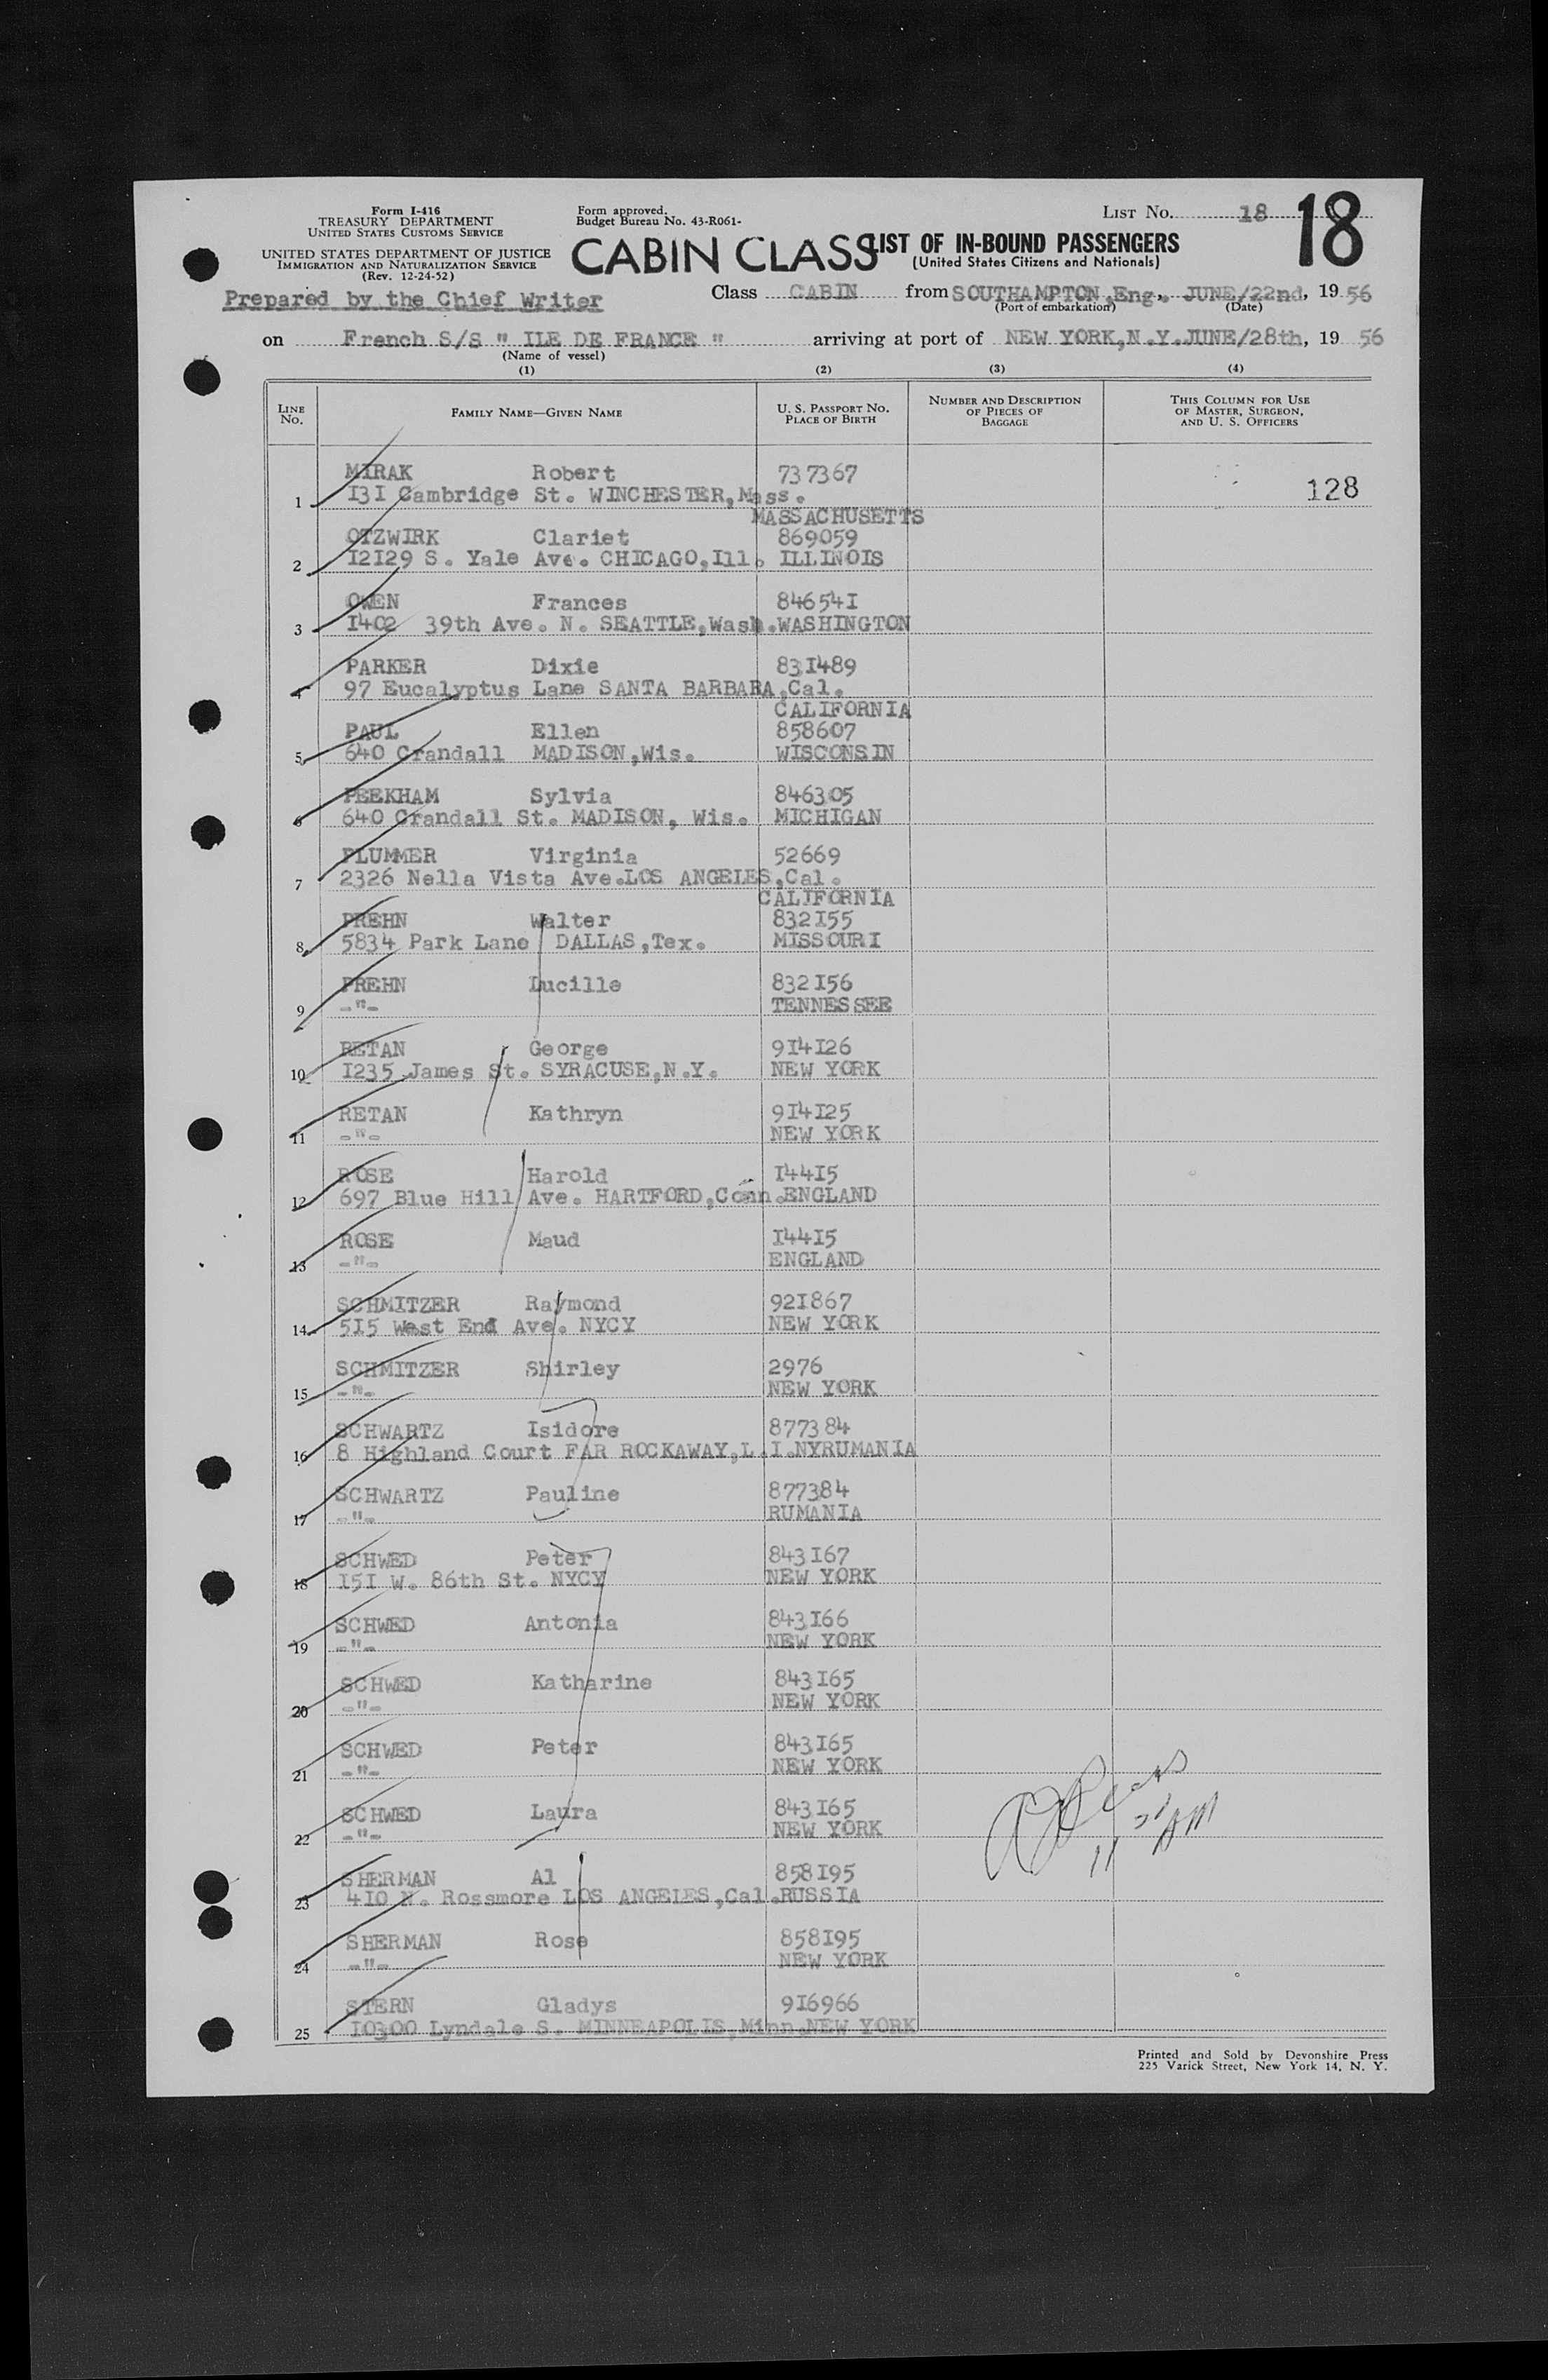 Form I-416
TREASURY DEPARTMENT
UNITED STATES CUSTOMS SERVICE
UNITED STATES DEPARTMENT OF JUSTICE
IMMIGRATION AND NATURALIZATION SERVICE
(Rev. 12-24-52)
Form approved.
Budget Bureau No. 43-R061-
LIST NO. 18 18
CABIN CLASS LIST OF IN-BOUND PASSENGERS
(United States Citizens and Nationals)
Prepared by the Chief Writer
Class CABIN from SOUTHAMPTON,Eng., JUNE/22nd, 19 56
(Port of embarkation) (Date)
on French S/S " ILE DE FRANCE " arriving at port of NEW YORK,N.Y.JUNE/28th, 19 56
(Name of vessel)
(1) (2) (3) (4)
LINE NO. FAMILY NAME—GIVEN NAME U. S. PASSPORT NO. PLACE OF BIRTH NUMBER AND DESCRIPTION OF PIECES OF BAGGAGE THIS COLUMN FOR USE OF MASTER, SURGEON, AND U. S. OFFICERS
MIRAK Robert 737367
1 I3I Cambridge St. WINCHESTER,Mass. 128
MASSACHUSETTS
OTZWIRK Clariet 869059
2 I2I29 S. Yale Ave. CHICAGO,Ill. ILLINOIS
OWEN Frances 84654I
3 I402 39th Ave. N. SEATTLE,Wash.WASHINGTON
PARKER Dixie 83I489
4 97 Eucalyptus Lane SANTA BARBARA,Cal.
CALIFORNIA
PAUL Ellen 858607
5 640 Crandall MADISON,Wis. WISCONSIN
PEEKHAM Sylvia 846305
6 640 Crandall St. MADISON, Wis. MICHIGAN
PLUMMER Virginia 52669
7 2326 Nella Vista Ave.LOS ANGELES,Cal.
CALIFORNIA
PREHN Walter 832I55
8 5834 Park Lane DALLAS,Tex. MISSOURI
PREHN Lucille 832I56
9 -"- TENNESSEE
RETAN George 9I4I26
10 I235 James St. SYRACUSE,N.Y. NEW YORK
RETAN Kathryn 9I4I25
11 -"- NEW YORK
ROSE Harold I44I5
12 697 Blue Hill Ave. HARTFORD,Conn.ENGLAND
ROSE Maud I44I5
13 -"- ENGLAND
SCHMITZER Raymond 92I867
14 5I5 West End Ave. NYCY NEW YORK
SCHMITZER Shirley 2976
15 -"- NEW YORK
SCHWARTZ Isidore 877384
16 8 Highland Court FAR ROCKAWAY,L.I.NYRUMANIA
SCHWARTZ Pauline 877384
17 -"- RUMANIA
SCHWED Peter 843I67
18 I5I W. 86th St. NYCY NEW YORK
SCHWED Antonia 843I66
19 -"- NEW YORK
SCHWED Katharine 843I65
20 -"- NEW YORK
SCHWED Peter 843I65
21 -"- NEW YORK
SCHWED Laura 843I65
22 -"- NEW YORK
SHERMAN Al 858I95
23 4I0 N. Rossmore LOS ANGELES,Cal.RUSSIA
SHERMAN Rose 858I95
24 -"- NEW YORK
STERN Gladys 9I6966
25 I0300 Lyndale S. MINNEAPOLIS,Minn.NEW YORK
Printed and Sold by Devonshire Press
225 Varick Street, New York 14, N. Y.